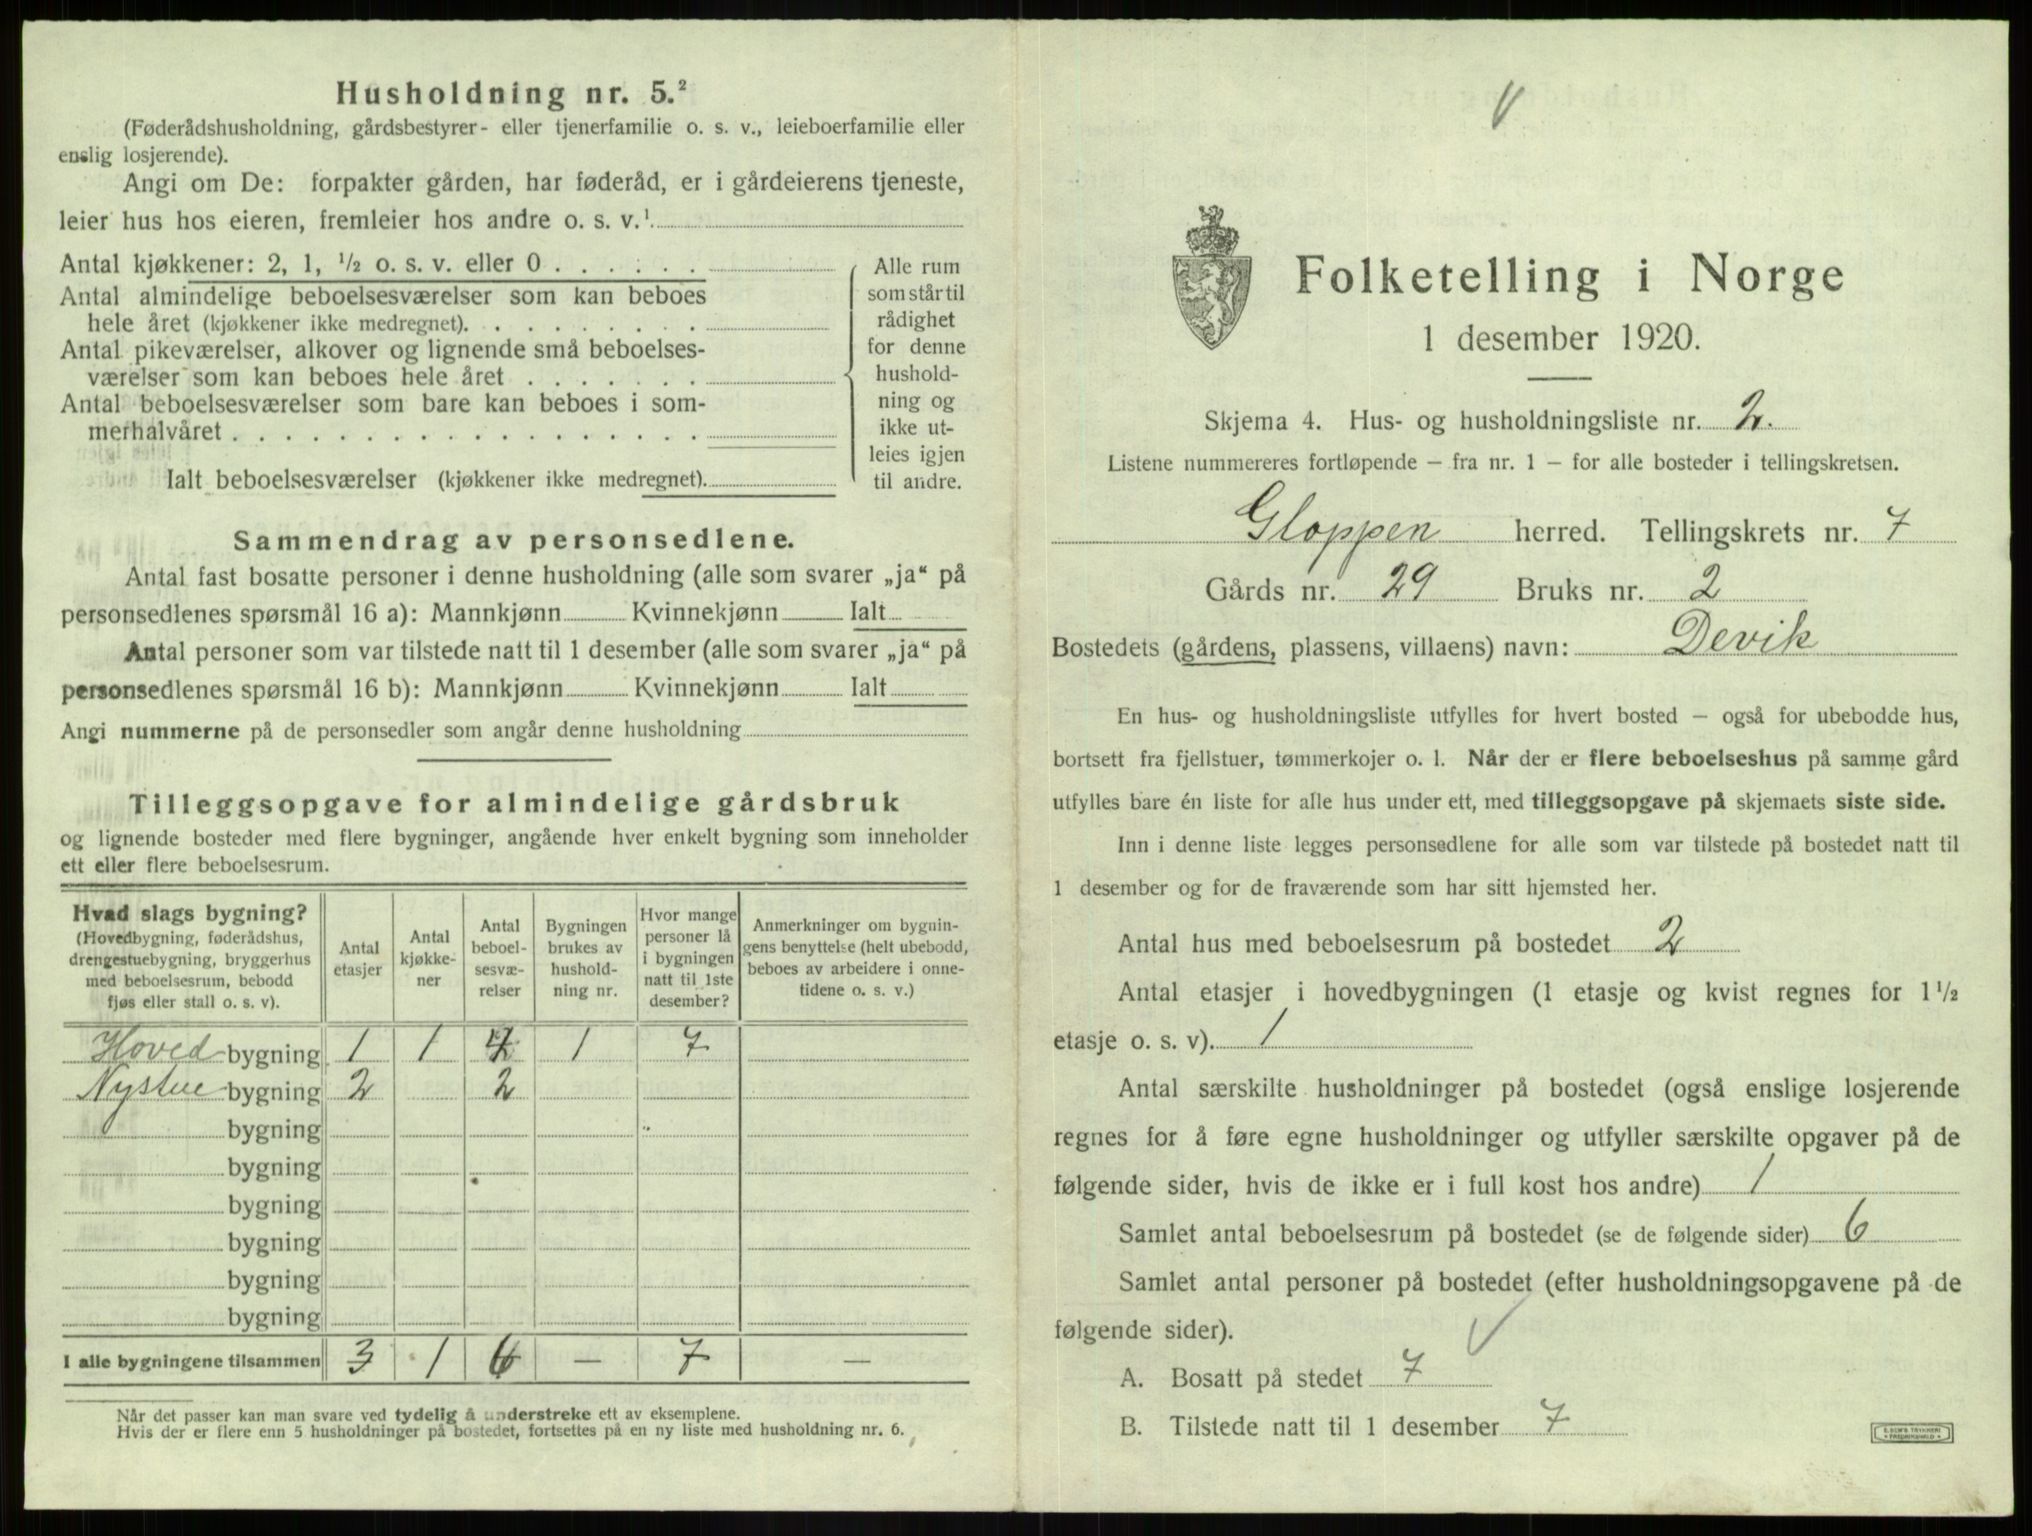 Husholdning nr. 5.²
(Føderådshusholdning, gårdsbestyrer- eller tjenerfamilie o. s. v., leieboerfamilie eller
enslig losjerende).
Angi om De: forpakter gården, har føderåd, er i gårdeierens tjeneste,
leier hus hos eieren, fremleier hos andre o. s. v.¹
Antal kjøkkener: 2, 1, ½ o. s. v. eller 0
Antal almindelige beboelsesværelser som kan beboes
hele året (kjøkkener ikke medregnet).
Antal pikeværelser, alkover og lignende små beboelses-
værelser som kan beboes hele året
Antal beboelsesværelser som bare kan beboes i som-
merhalvåret
Ialt beboelsesværelser (kjøkkener ikke medregnet).
Alle rum
som står til
rådighet
for denne
hushold-
ning og
ikke ut-
leies igjen
til andre.
Sammendrag av personsedlene.
Antal fast bosatte personer i denne husholdning (alle som svarer „ja“ på
personsedlenes spørsmål 16 a): Mannkjønn Kvinnekjønn Ialt
Antal personer som var tilstede natt til 1 desember (alle som svarer „ja“ på
personsedlenes spørsmål 16 b): Mannkjønn Kvinnekjønn Ialt
Angi nummerne på de personsedler som angår denne husholdning
Tilleggsopgave for almindelige gårdsbruk
og lignende bosteder med flere bygninger, angående hver enkelt bygning som inneholder
ett eller flere beboelsesrum.
Hvad slags bygning?
(Hovedbygning, føderådshus,
drengestuebygning, bryggerhus
med beboelsesrum, bebodd
fjøs eller stall o. s. v).
Antal
etasjer
Antal
kjøkke-
ner
Antal
beboel-
sesvæ-
relser
Bygningen
brukes av
hushold-
ning nr.
Hvor mange
personer lå
i bygningen
natt til 1ste
desember?
Anmerkninger om bygnin-
gens benyttelse (helt ubebodd,
beboes av arbeidere i onne-
tidene o. s. v.)
Hoved bygning 1 1 4 1 7
Nystue bygning 2 2
bygning
bygning
bygning
bygning
bygning
bygning
I alle bygningene tilsammen 3 1 6 — 7 —
Når det passer kan man svare ved tydelig å understreke ett av eksemplene.
Hvis der er flere enn 5 husholdninger på bostedet, fortsettes på en ny liste med husholdning nr. 6.
Folketelling i Norge
1 desember 1920.
Skjema 4. Hus- og husholdningsliste nr. 2.
Listene nummereres fortløpende – fra nr. 1 – for alle bosteder i tellingskretsen.
Gloppen herred. Tellingskrets nr. 7
Gårds nr. 29 Bruks nr. 2
Bostedets (gårdens, plassens, villaens) navn: Devik
En hus- og husholdningsliste utfylles for hvert bosted – også for ubebodde hus,
bortsett fra fjellstuer, tømmerkojer o. l. Når der er flere beboelseshus på samme gård
utfylles bare én liste for alle hus under ett, med tilleggsopgave på skjemaets siste side.
Inn i denne liste legges personsedlene for alle som var tilstede på bostedet natt til
1 desember og for de fraværende som har sitt hjemsted her.
Antal hus med beboelsesrum på bostedet 2
Antal etasjer i hovedbygningen (1 etasje og kvist regnes for 1½
etasje o. s. v). 1
Antal særskilte husholdninger på bostedet (også enslige losjerende
regnes for å føre egne husholdninger og utfyller særskilte opgaver på de
følgende sider, hvis de ikke er i full kost hos andre) 1
Samlet antal beboelsesrum på bostedet (se de følgende sider) 6
Samlet antal personer på bostedet (efter husholdningsopgavene på de
følgende sider).
A. Bosatt på stedet 7
B. Tilstede natt til 1 desember 7